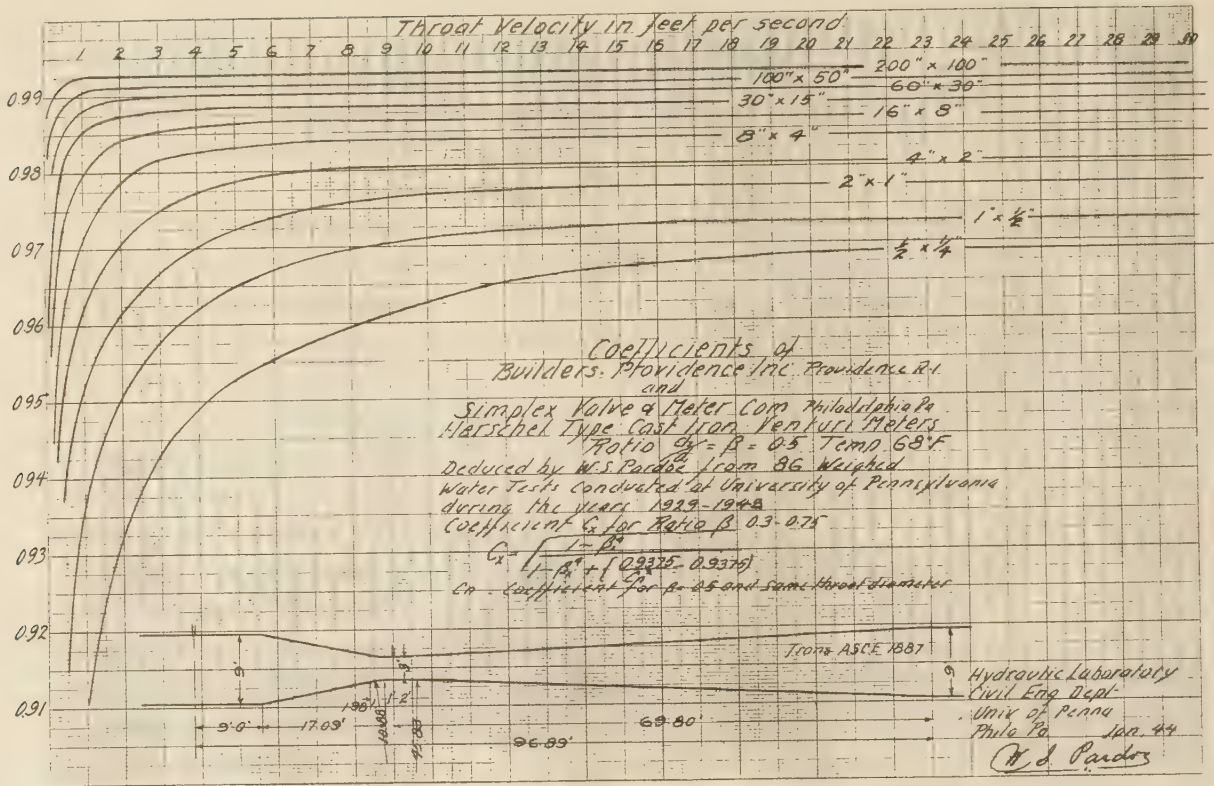 Throat Velocity in feet per second
1 2 3 4 5 6 7 8 9 10 11 12 13 14 15 16 17 18 19 20 21 22 23 24 25 26 27 28 29 30
200" x 100"
100" x 50"
60" x 30"
30" x 15"
16" x 8"
8" x 4"
4" x 2"
2" x 1"
1" x 1/2"
1/2" x 1/4"
0.99
0.98
0.97
0.96
0.95
0.94
0.93
0.92
0.91
Coefficients of
Builders-Providence Inc Providence R.I.
and
Simplex Valve & Meter Com Philadelphia Pa
Herschel Type Cast Iron Venturi Meters
Ratio = β = 0.5 Temp 68°F
Deduced by W.S. Pardoe from 86 Weighed
Water Tests Conducted at University of Pennsylvania
during the years 1929-1943
Coefficient Cx for Ratio β 0.3-0.75
Cx = √(1 - βx⁴ / 1 - βx⁴ + (0.9375 / - 0.9375))
Cn = Coefficient for β = 0.5 and same throat diameter
Trans ASCE 1887
9'
9'
9'-0"
17.09'
1-2'
69.80'
96.89'
Hydraulic Laboratory
Civil Eng Dept
Univ of Penna
Phila Pa Jan. 44
W S Pardoe